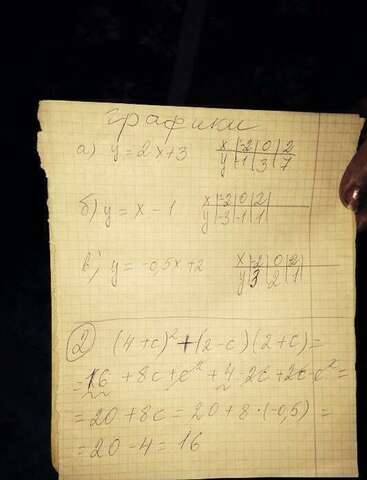 графики
а) y = 2x+3 x | -2 | 0 | 2
y | -1 | 3 | 7
б) y = x - 1 x | -2 | 0 | 2 |
y | -3 | -1 | 1 |
в) y = -0,5x+2 x | -2 | 0 | 2
y | 3 | 2 | 1
2 (4+c)² + (2-c)(2+c) =
= 16 + 8c + c² + 4 - 2c + 2c - c² =
= 20 + 8c = 20 + 8 · (-0,5) =
= 20 - 4 = 16